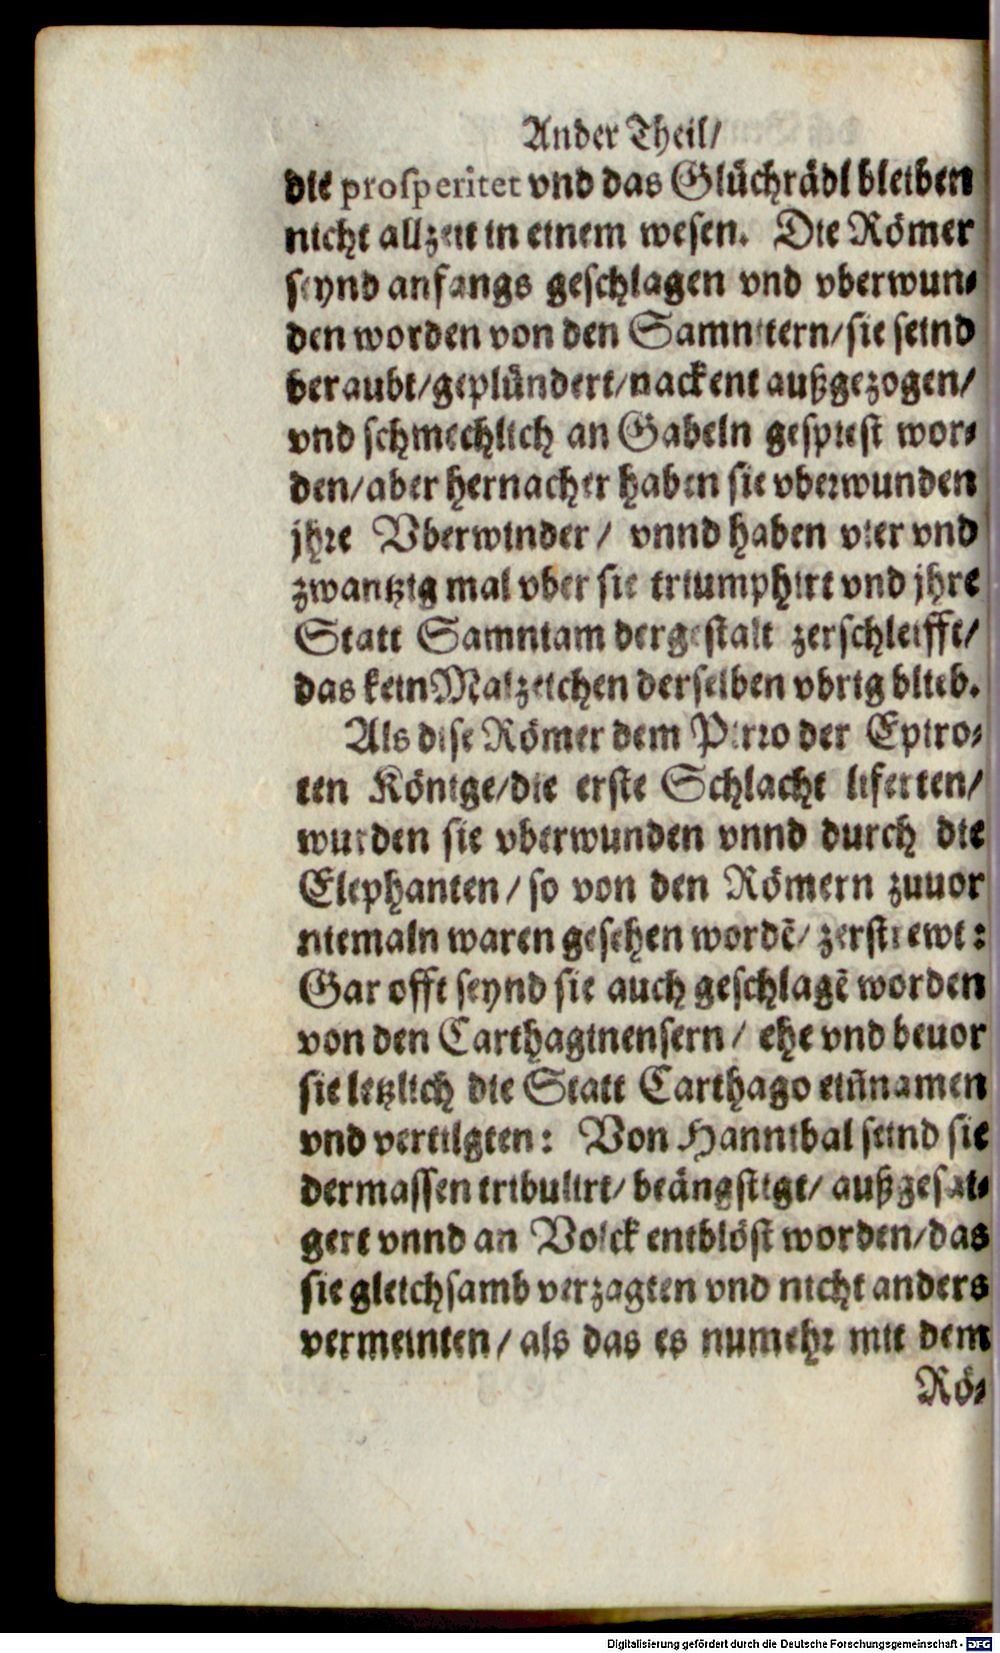 Ander Theil/
die prosperitet vnd das Glüchrädl bleiben
nicht allzeit in einem wesen. Die Römer
seynd anfangs geschlagen vnd vberwun-
den worden von den Samnitern/sie seind
beraubt/geplündert/nackent außgezogen/
vnd schmechlich an Gabeln gespiest wor-
den/aber hernacher haben sie vberwunden
jhre Vberwinder/ vnnd haben vier vnd
zwantzig mal vber sie triumphirt vnd jhre
Statt Samniam dergestalt zerschleifft/
das kein Malzeichen derselben vbrig blieb.
Als dise Römer dem Pirro der Epiro-
ten Könige/die erste Schlacht liferten/
wurden sie vberwunden vnnd durch die
Elephanten/so von den Römern zuuor
niemaln waren gesehen wordē/ zerstrewt:
Gar offt seynd sie auch geschlagē worden
von den Carthaginensern/ ehe vnd beuor
sie letzlich die Statt Carthago eiñnamen
vnd vertilgten: Von Hannibal seind sie
dermassen tribulirt/ beängstigt/ außgesai-
gert vnnd an Volck entblöst worden/das
sie gleichsamb verzagten vnd nicht anders
vermeinten/als das es numehr mit dem
Rö-
Digitalisierung gefördert durch die Deutsche Forschungsgemeinschaft - DFG